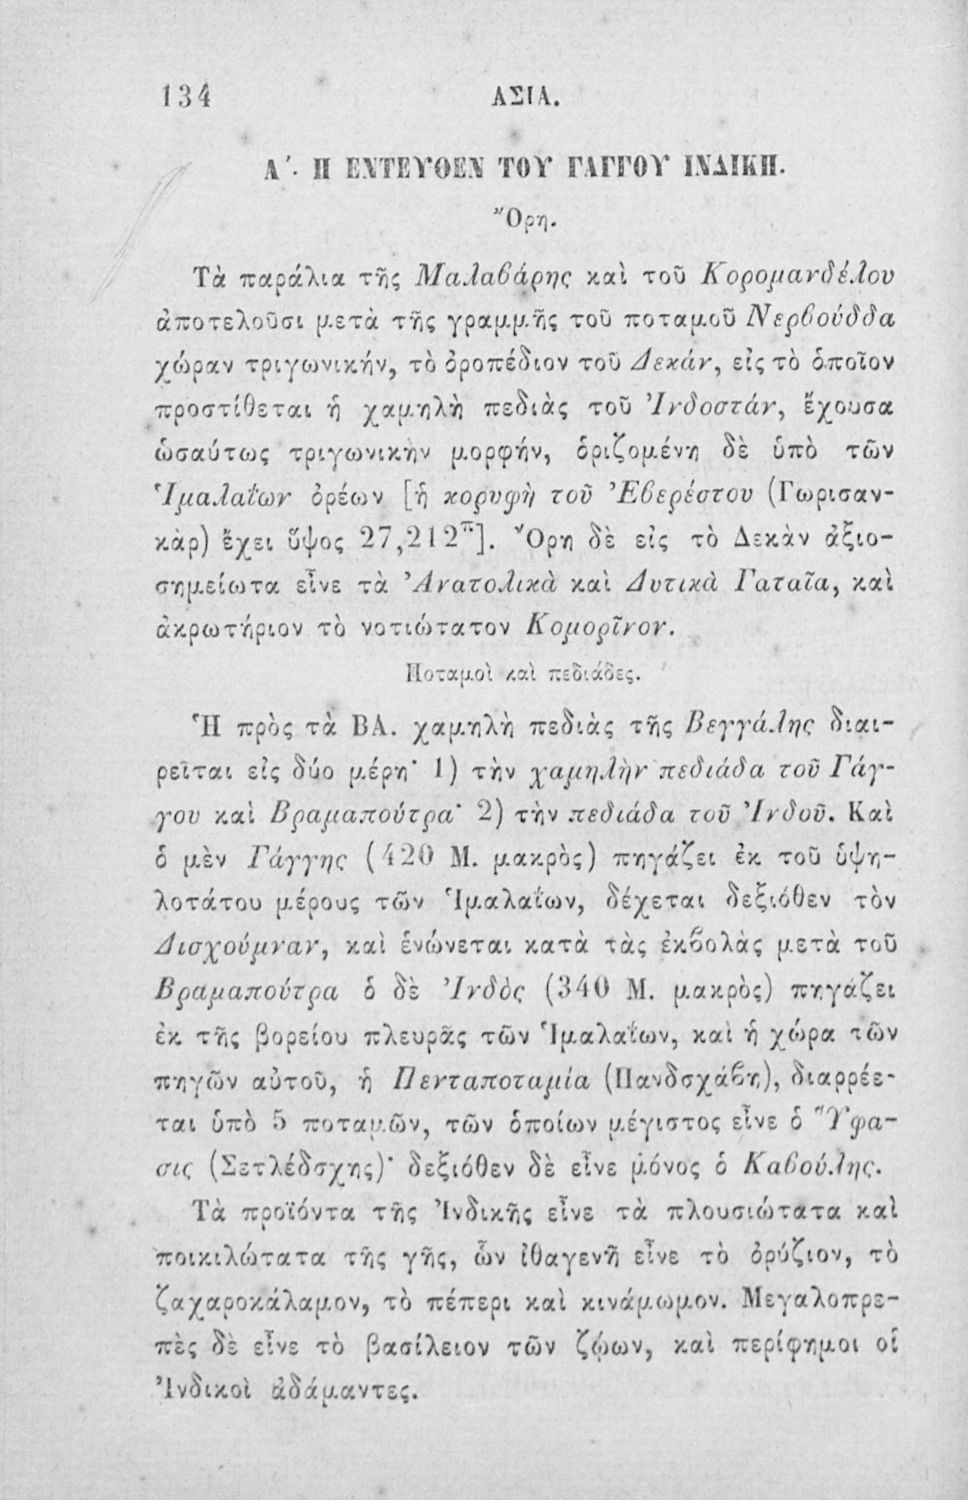 134 ΑΣΙΑ.
Α΄. Η ΕΝΤΕΥΘΕΝ ΤΟΥ ΓΑΓΓΟΥ ΙΝΔΙΚΗ.
Ὄρη.
Τὰ παράλια τῆς Μαλαβάρης καὶ τοῦ Κορομανδέλου
ἀποτελοῦσι μετὰ τῆς γραμμῆς τοῦ ποταμοῦ Νερβούδδα
χώραν τριγωνικήν, τὸ ὀροπέδιον τοῦ Δεκάν, εἰς τὸ ὁποῖον
προστίθεται ἡ χαμηλὴ πεδιὰς τοῦ Ἰνδοστάν, ἔχουσα
ὡσαύτως τριγωνικὴν μορφήν, ὁριζομένη δὲ ὑπὸ τῶν
Ἱμαλαΐων ὀρέων [ἡ κορυφὴ τοῦ Ἐβερέστου (Γωρισαν-
κὰρ) ἔχει ὕψος 27,212π]. Ὄρη δὲ εἰς τὸ Δεκὰν ἀξιο-
σημείωτα εἶνε τὰ Ἀνατολικὰ καὶ Δυτικὰ Γαταῖα, καὶ
ἀκρωτήριον τὸ νοτιώτατον Κομορῖνον.
Ποταμοὶ καὶ πεδιάδες.
Ἡ πρὸς τὰ ΒΑ. χαμηλὴ πεδιὰς τῆς Βεγγάλης διαι-
ρεῖται εἰς δύο μέρη· 1) τὴν χαμηλὴν πεδιάδα τοῦ Γάγ-
γου καὶ Βραμαπούτρα· 2) τὴν πεδιάδα τοῦ Ἰνδοῦ. Καὶ
ὁ μὲν Γάγγης (420 Μ. μακρὸς) πηγάζει ἐκ τοῦ ὑψη-
λοτάτου μέρους τῶν Ἱμαλαΐων, δέχεται δεξιόθεν τὸν
Δισχούμναν, καὶ ἑνώνεται κατὰ τὰς ἐκβολὰς μετὰ τοῦ
Βραμαπούτρα ὁ δὲ Ἰνδὸς (340 Μ. μακρὸς) πηγάζει
ἐκ τῆς βορείου πλευρᾶς τῶν Ἱμαλαΐων, καὶ ἡ χώρα τῶν
πηγῶν αὐτοῦ, ἡ Πενταποταμία (Πανδσχάβη), διαρρέε-
ται ὑπὸ 5 ποταμῶν, τῶν ὁποίων μέγιστος εἶνε ὁ Ὕφα-
σις (Σετλέδσχης)· δεξιόθεν δὲ εἶνε μόνος ὁ Καβούλης.
Τὰ προϊόντα τῆς Ἰνδικῆς εἶνε τὰ πλουσιώτατα καὶ
ποικιλώτατα τῆς γῆς, ὧν ἰθαγενῆ εἶνε τὸ ὀρύζιον, τὸ
ζαχαροκάλαμον, τὸ πέπερι καὶ κινάμωμον. Μεγαλοπρε-
πὲς δὲ εἶνε τὸ βασίλειον τῶν ζῴων, καὶ περίφημοι οἱ
Ἰνδικοὶ ἀδάμαντες.